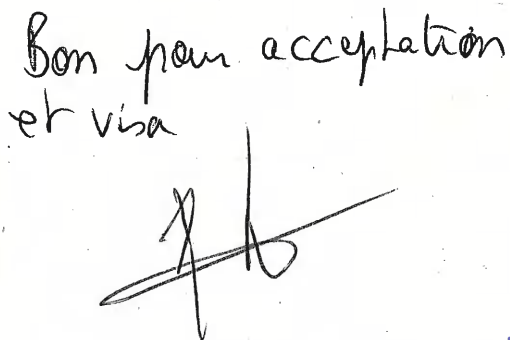 Bon pour acceptation
et visa